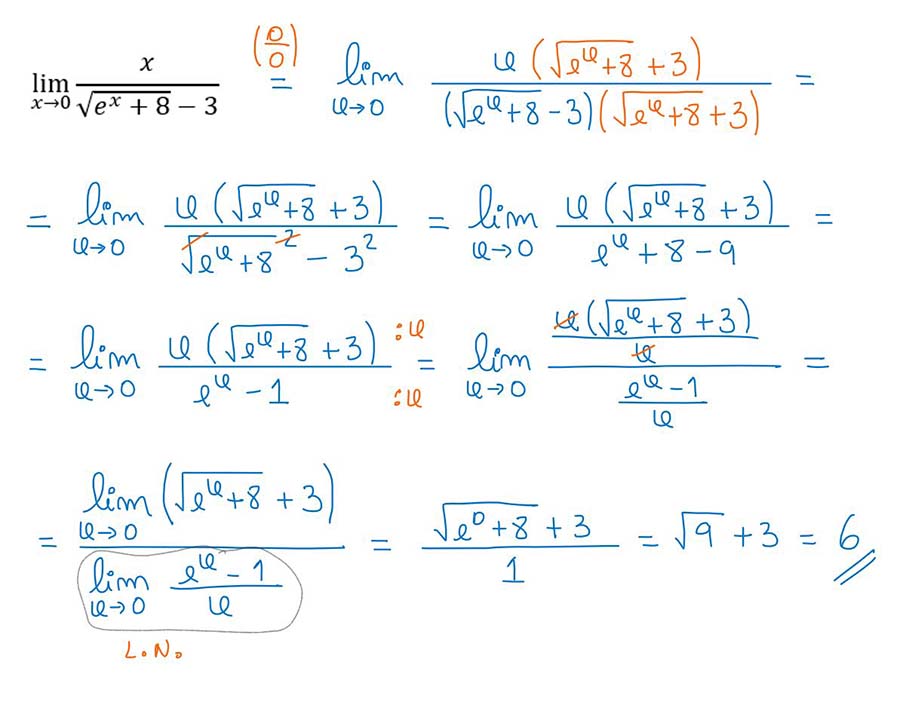 lim x→0 x / (√(e^x + 8) − 3) (0/0) = lim x→0 x (√(e^x+8) + 3) / ((√(e^x+8) − 3)(√(e^x+8) + 3)) =
= lim x→0 x (√(e^x+8) + 3) / (√(e^x+8)^2 − 3^2) = lim x→0 x (√(e^x+8) + 3) / (e^x + 8 − 9) =
= lim x→0 x (√(e^x+8) + 3) / (e^x − 1) :x :x = lim x→0 (x (√(e^x+8) + 3) / x) / ((e^x − 1) / x) =
= lim x→0 (√(e^x+8) + 3) / lim x→0 ((e^x − 1) / x) = (√(e^0+8) + 3) / 1 = √9 + 3 = 6
L.N.